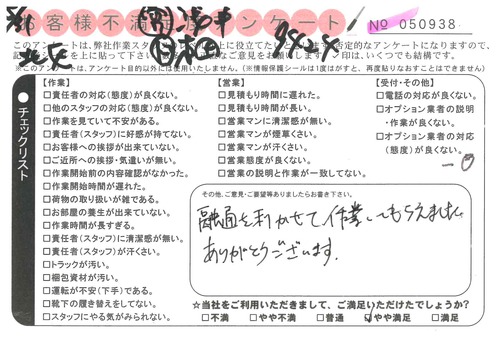 お客様不満足度アンケート
№ 050938
このアンケートは、弊社作業スタッフの
※このアンケートは、アンケート目的以外には使用いたしません。(※情報保護シールは1度はがすと、再度貼りなおすことはできません)
チェックリスト
【作業】
□責任者の対応(態度)が良くない。
□他のスタッフの対応(態度)が良くない。
□作業を見ていて不安がある。
□責任者(スタッフ)に好感が持てない。
□お客様への挨拶が出来ていない。
□ご近所への挨拶・気遣いが無い。
□作業開始前の内容確認がなかった。
□作業開始時間が遅れた。
□荷物の取り扱いが雑である。
□お部屋の養生が出来ていない。
□作業時間が長すぎる。
□責任者(スタッフ)に清潔感が無い。
□責任者(スタッフ)が汗くさい。
□トラックが汚い。
□梱包資材が汚い。
□運転が不安(下手)である。
□靴下の履き替えをしてない。
□スタッフにやる気がみられない。
【営業】
□見積もり時間に遅れた。
□見積もり時間が長い。
□営業マンに清潔感が無い。
□営業マンが煙草くさい。
□営業マンが汗くさい。
□営業態度が良くない。
□営業の説明と作業が一致してない。
【受付・その他】
□電話の対応が良くない。
□オプション業者の説明
・作業が良くない。
□オプション業者の対応
(態度)が良くない。
その他、ご意見・ご要望等ありましたらお書き下さい。
融通を利かせて作業してもらえました。
ありがとうございます。
☆当社をご利用いただきまして、ご満足いただけたでしょうか?
□不満 □やや不満 □普通 ☑やや満足 □満足